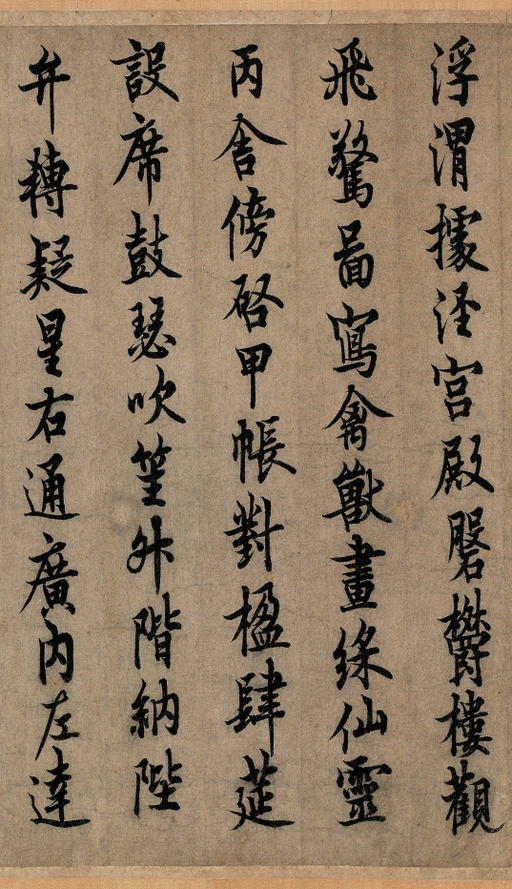 浮渭據涇宮殿磐欝樓觀
飛驚啚寫禽獸畫綵仙靈
丙舍傍啓甲帳對楹肆莚
設席鼓瑟吹笙升階納陛
弁轉疑星右通廣內左達